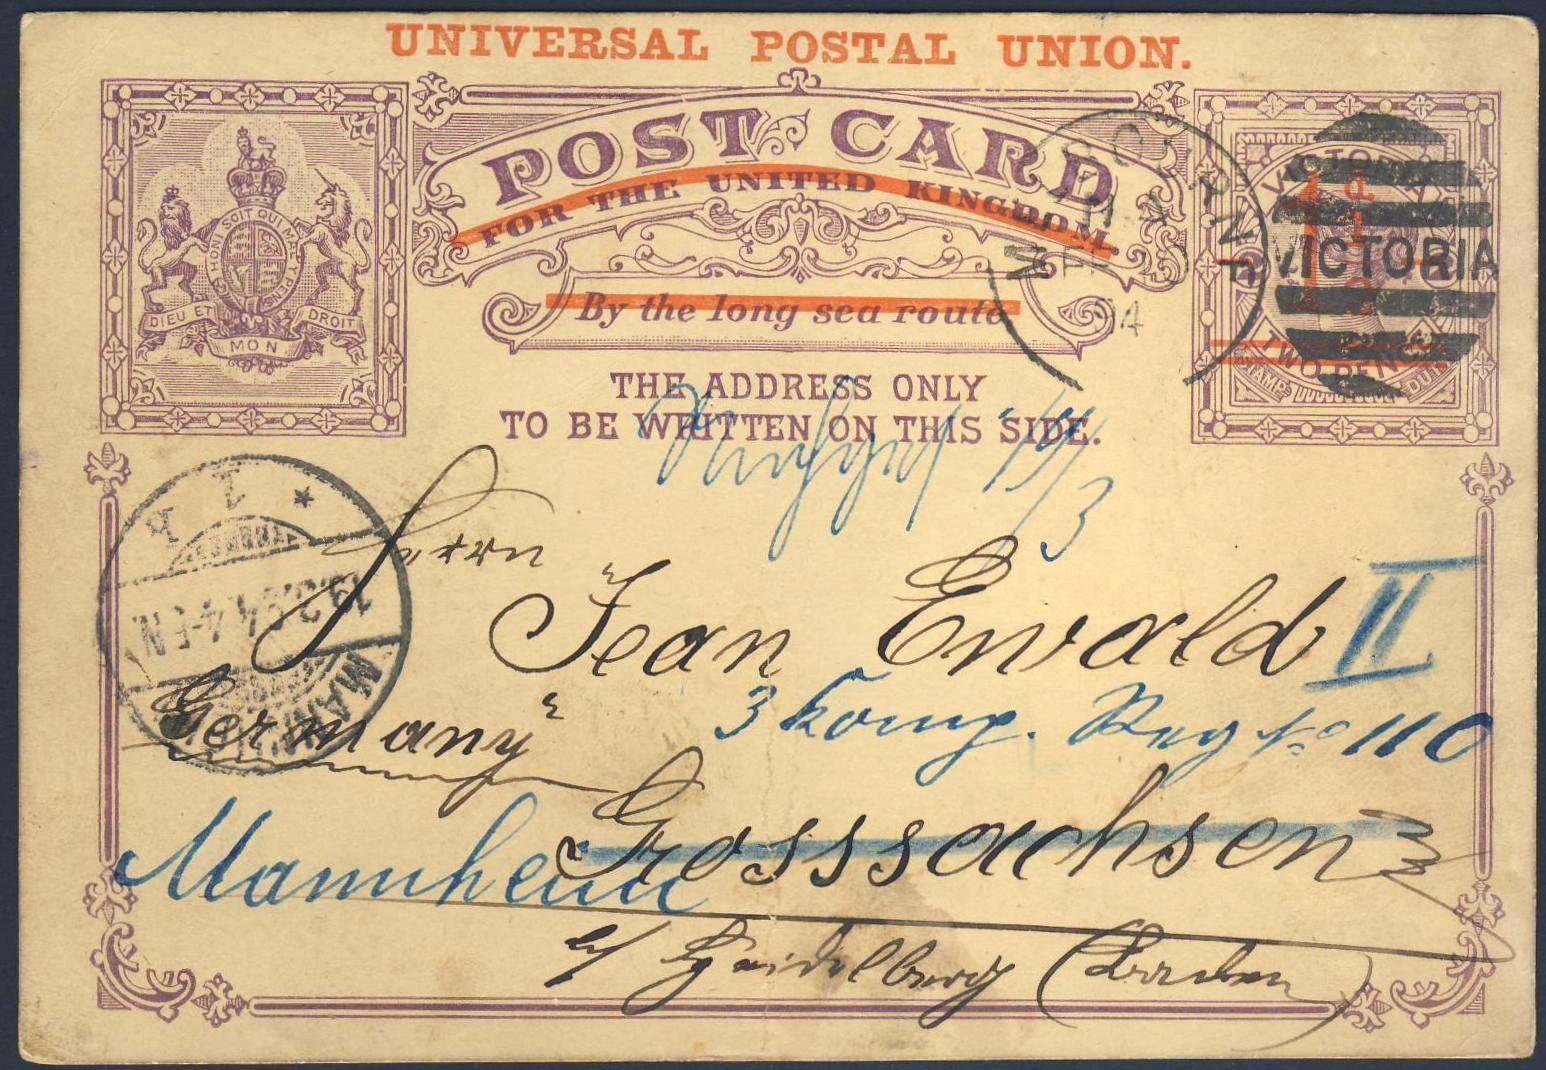 UNIVERSAL POSTAL UNION.
POST CARD
FOR THE UNITED KINGDOM.
By the long sea route
THE ADDRESS ONLY
TO BE WRITTEN ON THIS SIDE.
HONI SOIT QUI MAL Y PENSE
DIEU ET MON DROIT
MELBOURNE
94
VICTORIA
VICTORIA
1d
1/2
TWO PENCE
STAMP DUTY
14/3
Herrn
Jean Ewald II
Germany
3 Komp. Reg No 110
Grosssachsen
Mannheim
b/ Heidelberg (Baden)
MANNHEIM
19.2.94.4-5N
* 1